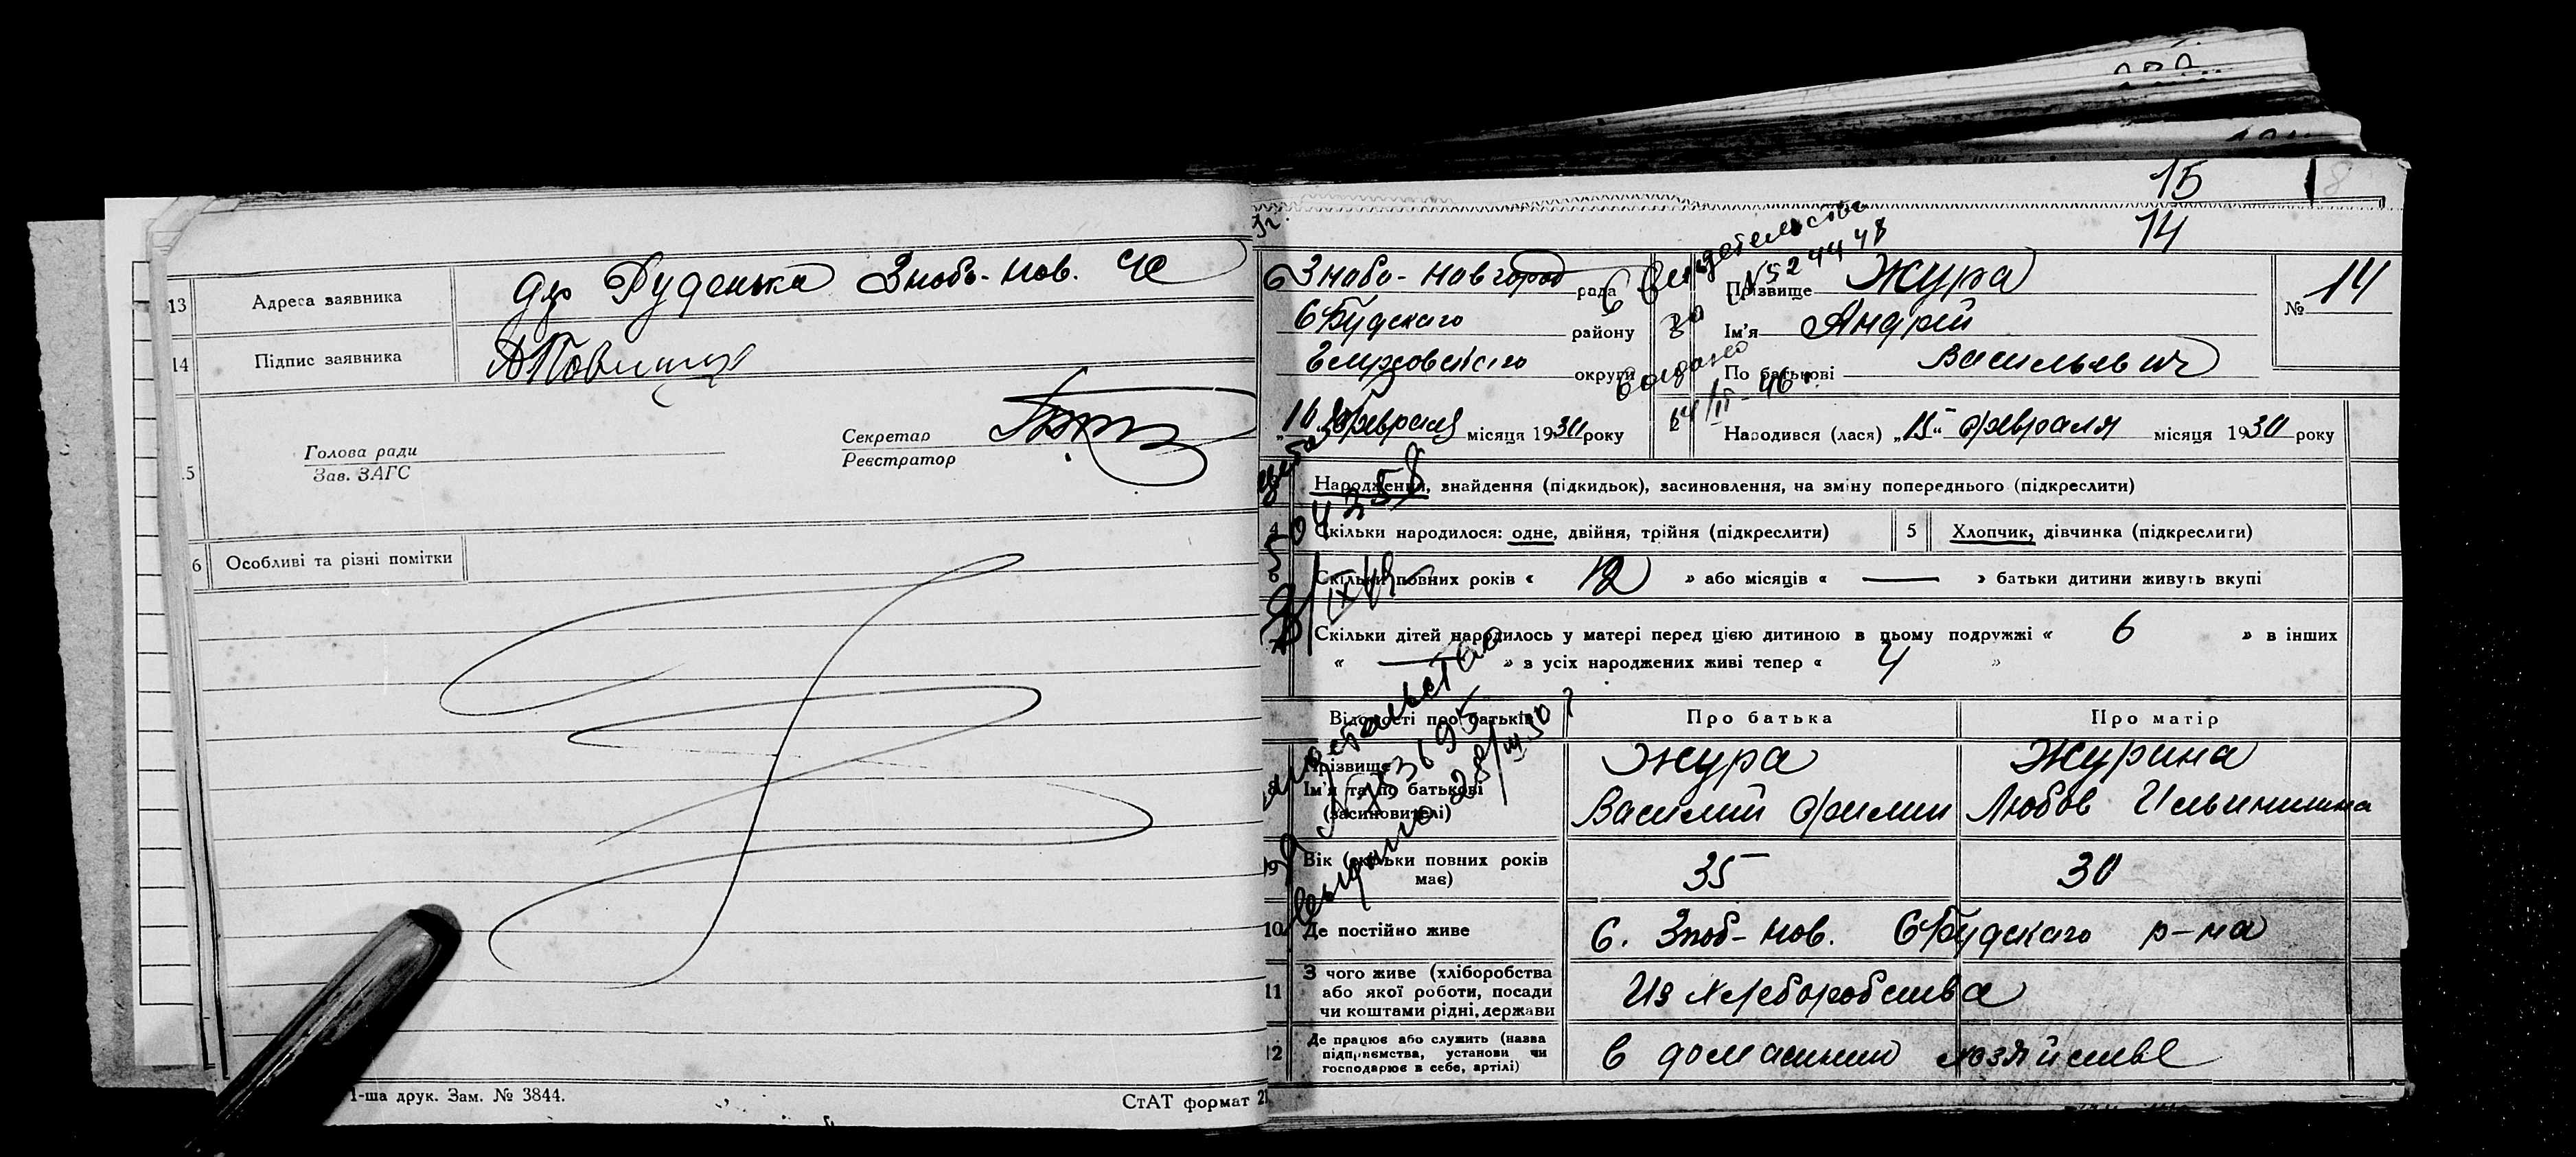 13 Адреса заявника др Руденька Знобь-Нов.
14 Підпис заявника
Голова ради
Зав. ЗАГС
Секретар
Реєстратор
Особливі та різні помітки
1-ша друк. Зам. № 3844.
СтАТ формат
15
14
Знобо-Новгород рада
СБудскаго району
округи
16 февраля місяця 1930 року
Свидетельство
№ 524448
выдано
Прізвище Жура
Ім'я Андрій
По батькові Васильевич
№ 14
Народився (лася) „15" февраля місяця 1930 року
Народження, знайдення (підкидьок), засиновлення, на зміну попереднього (підкреслити)
4 Скільки народилося: одне, двійня, трійня (підкреслити)
5 Хлопчик, дівчинка (підкреслити)
Скільки повних років « 12 » або місяців « — » батьки дитини живуть вкупі
Скільки дітей народилось у матері перед цією дитиною в цьому подружжі « 6 » в інших
« — » з усіх народжених живі тепер « 4 »
Відомості про батьків
Про батька
Про матір
8 Прізвище
Ім'я та по батькові
(засиновителі)
Жура
Василий Филип
Журина
Любов Ильинишна
9 Вік (скільки повних років має)
35
30
10 Де постійно живе
С. Зноб-Нов. СБудскаго р-на
11 З чого живе (хліборобства
або якої роботи, посади
чи коштами рідні, держави
Из хлеборобства
12 Де працює або служить (назва
підприємства, установи чи
господарює в себе, артілі)
в домашнии хозяйстве